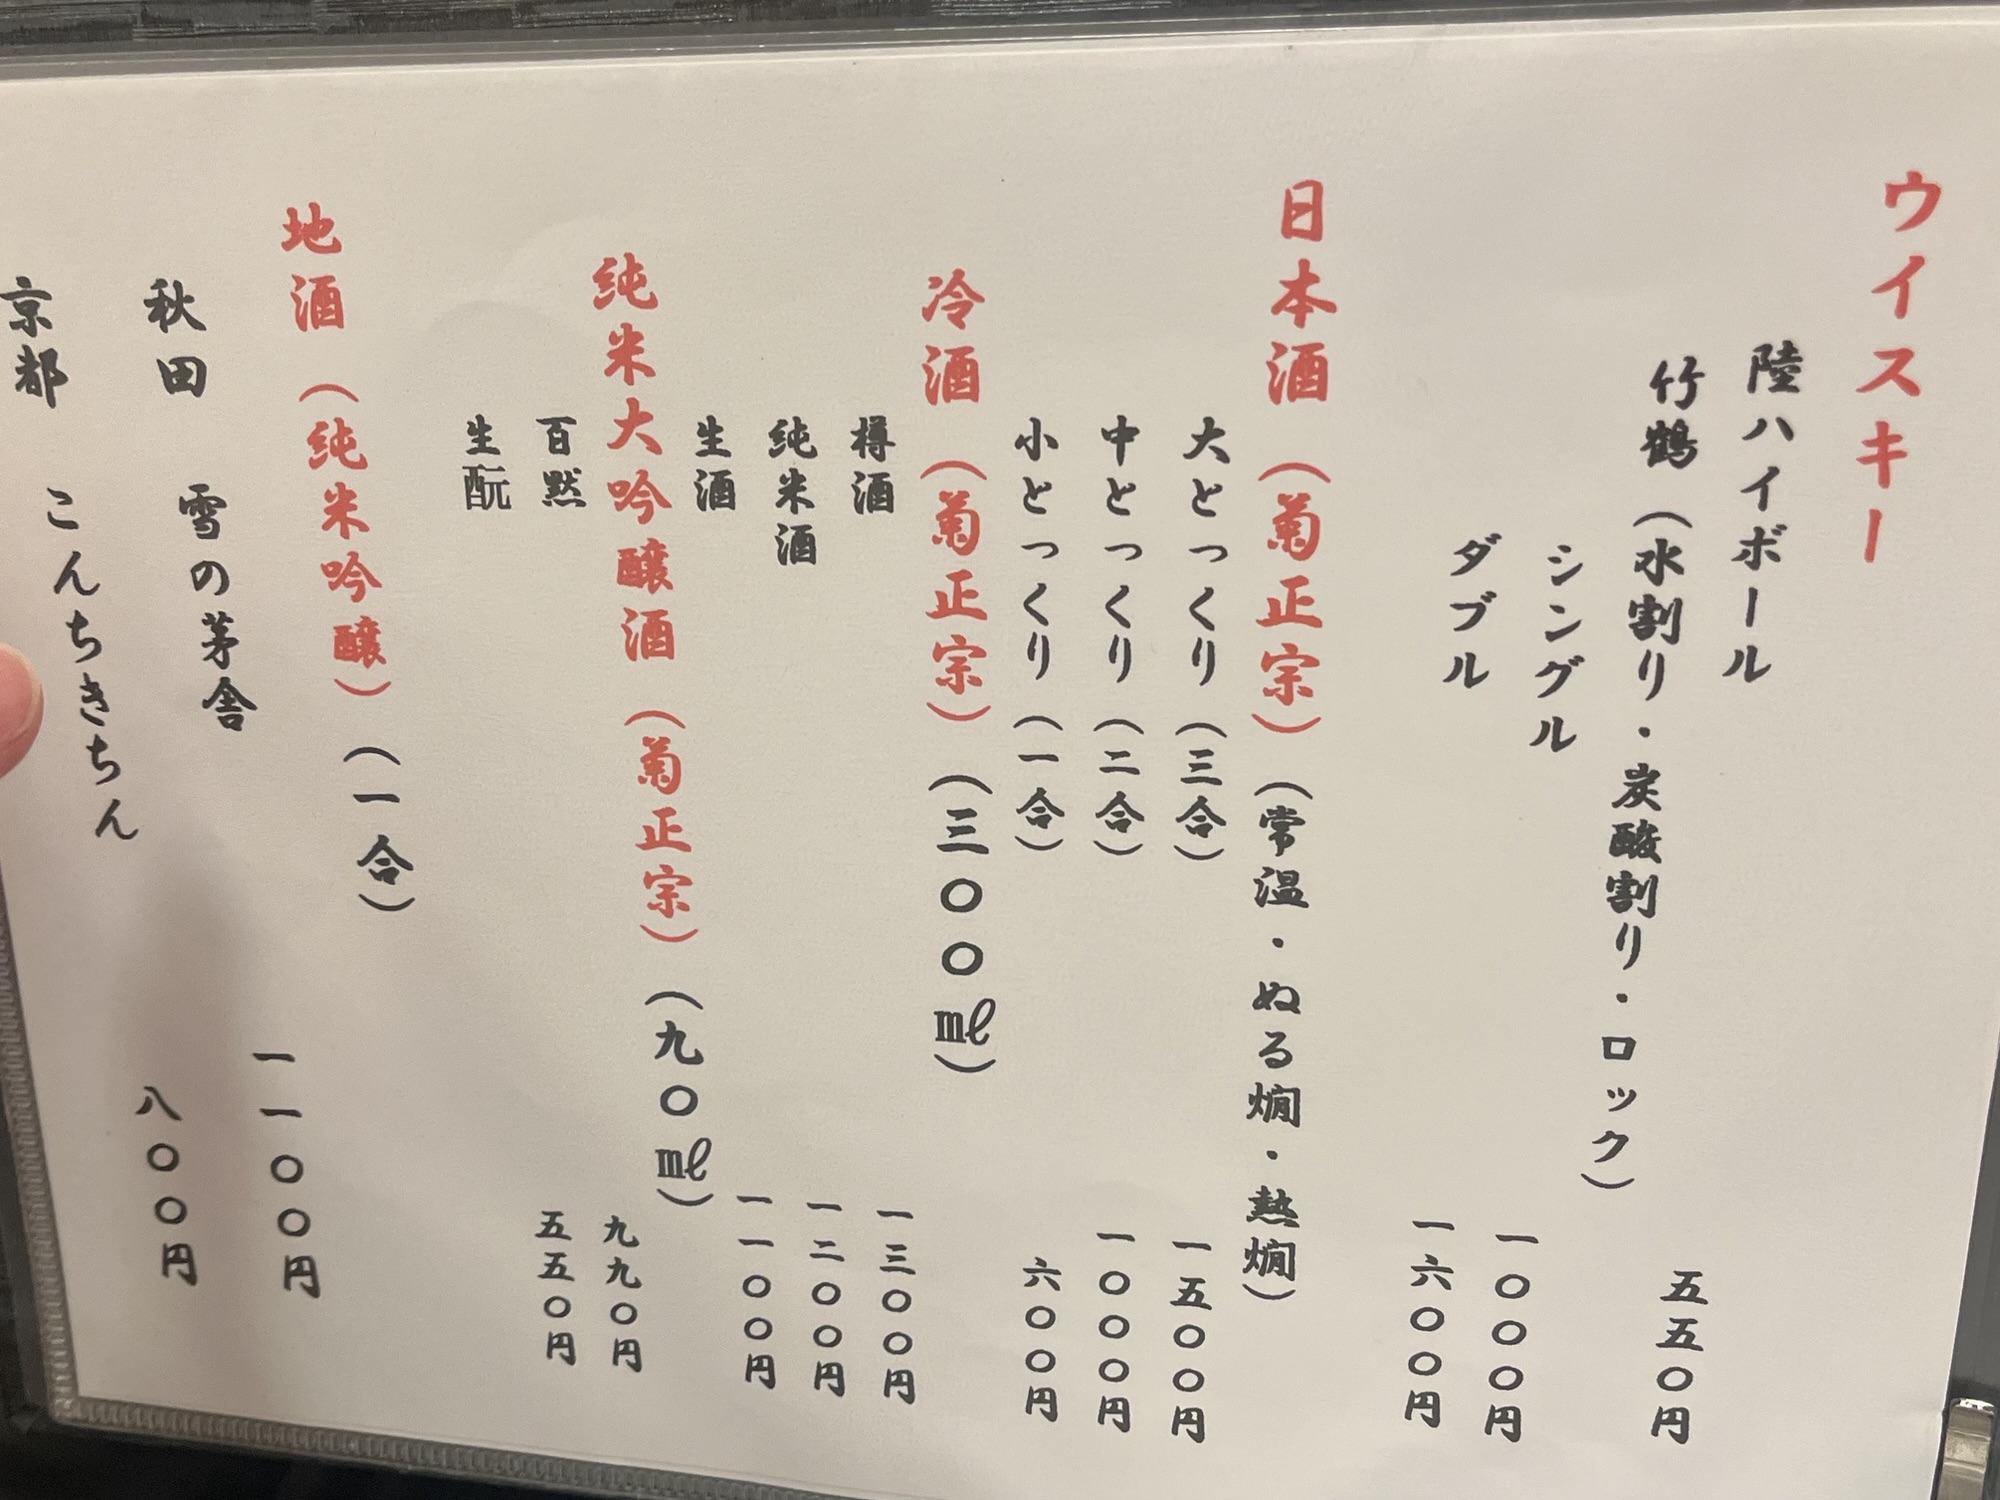 ウイスキー
陸ハイボール 五五〇円
竹鶴（水割り・炭酸割り・ロック）
シングル 一〇〇〇円
ダブル 一六〇〇円
日本酒（菊正宗）（常温・ぬる燗・熱燗）
大とっくり（三合） 一五〇〇円
中とっくり（二合） 一〇〇〇円
小とっくり（一合） 六〇〇円
冷酒（菊正宗）（三〇〇㎖）
樽酒 一三〇〇円
純米酒 一二〇〇円
生酒 一一〇〇円
純米大吟醸酒（菊正宗）（九〇㎖）
百黙 九九〇円
生酛 五五〇円
地酒（純米吟醸）（一合）
秋田 雪の茅舎 一一〇〇円
京都 こんちきちん 八〇〇円